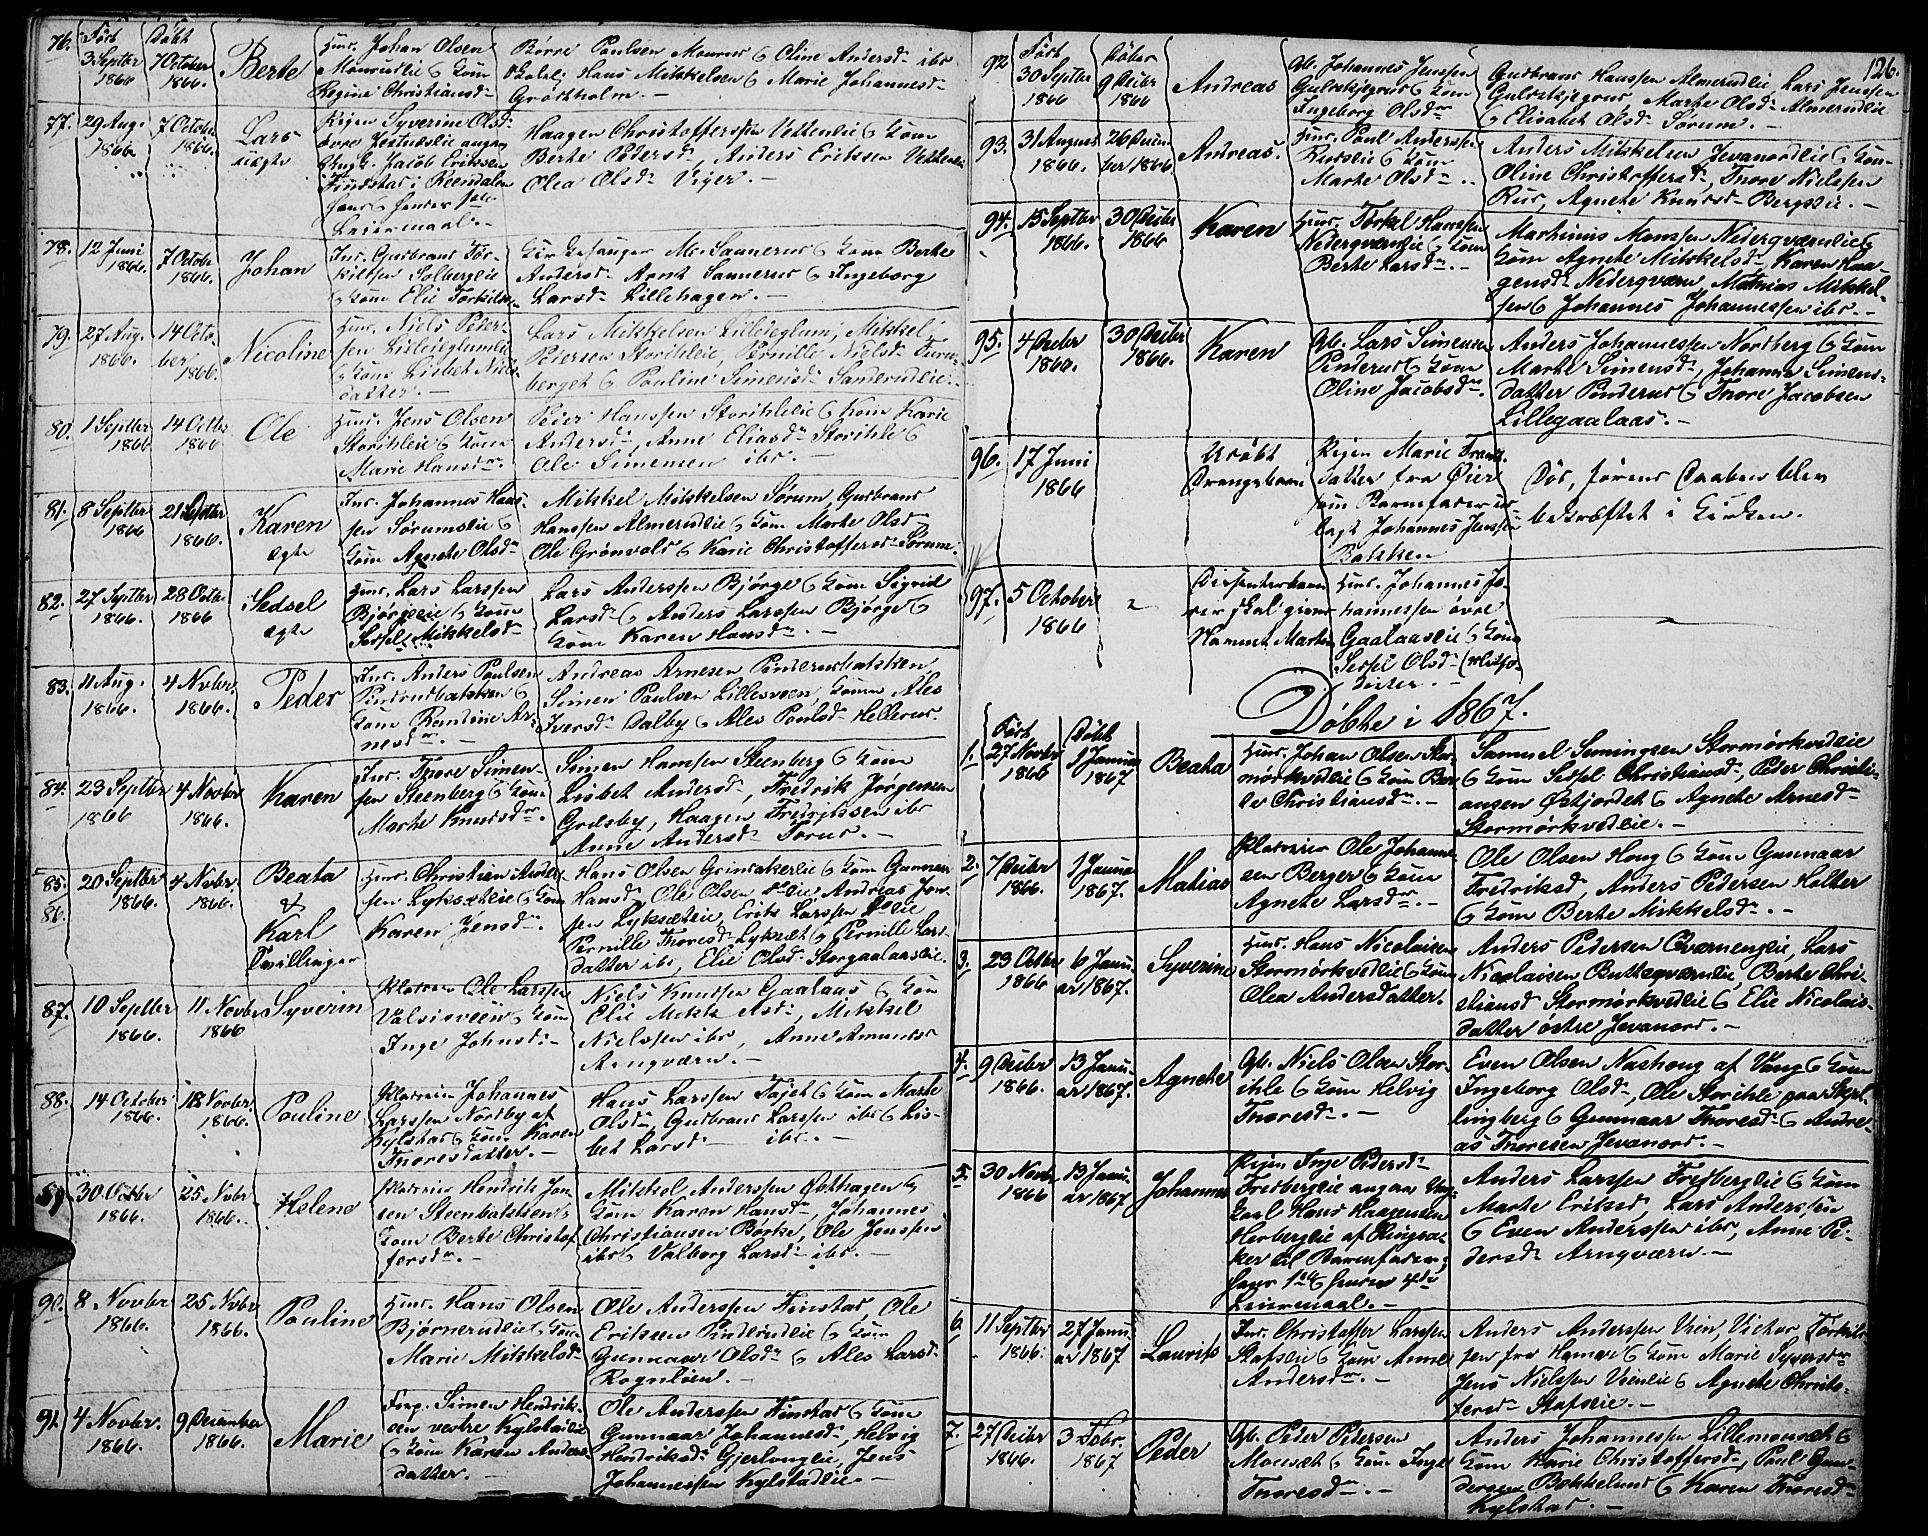 76.
Født 3 Septbr 1866
Døbt 7 October 1866.
Berte
Huus. Johan Olsen
Maurudlie & Kone
Regine Christiansdr
Børre Paulsen Maurud & Oline Andersdr ibr
Hans Mikkelsen & Marie Johannesdr
Grøtholm.
77.
29 Aug. 1866.
7 October 1866.
Lars
uægte
Pigen Syverine Olsdr
øvre
Ungk. Jacob Eriksen
Findstad i Reendalen
Leiermaal.
Haagen Christoffersen Vettenlie & Kone
Berte Pedersdr, Anders Eriksen
Olea Olsdr Viger.
78.
12 Juni 1866.
7 Octobr 1866.
Johan
Ins. Gudbrand Tor-
kilsen Solberglie
& Kone Elie Torkilsdr
Kirkesanger M. Sannerud & Kone Berte
Andersdr Arnt Sannerud & Ingeborg
Larsdr Lillehagen.
79.
27 Aug. 1866.
14 October 1866.
Nicoline
Huus. Niels Peter-
sen
& Kone Lisbet Niels-
datter.
Lars Mikkelsen, Mikkel
Pedersen Storihlelie, Pernille Nielsdr Furu-
berget & Pauline Simensdr Sanderudlie.
80.
1 Septbr 1866
14 Octbr 1866
Ole
Huus. Jens Olsen
Storihlelie & Kone
Marie Hansdr.
Peder Hanssen Storihlelie & Kone Karie
Andersdr, Anne Eliasdr Storihle &
Ole Simensen ibr.
81.
8 Septbr 1866
21 Septbr 1866.
Karen
ægte
Ins. Johannes Hans-
sen Sørumslie &
Kone Agnete Olsdr
Mikkel Mikkelsen Sørum, Gudbrand
Hanssen Almerudlie & Kone Marte Olsdr
Ole Grønvold & Karie Christoffersdr Sørum.
82.
27 Septbr 1866.
28 Octbr 1866
Sedsel
ægte
Huus. Lars Larssen
Bjørgelie & Kone
Sedsel Mikkelsdr
Lars Anderssen Bjørge & Kone Sigrid
Larsdr & Anders Larssen Bjørge &
Kone Karen Hansdr.
83.
11 Aug. 1866.
4 Novbr 1866.
Peder
Ins. Anders Paulsen
Pinderudbakken &
Kone Randine Ar-
nesdr.
Andreas Arnesen Pinderudbakken
Simen Paulsen Lillesveen, Kone Ales
Iversdr Dalby & Ales Paulsdr Hellerud.
84.
23 Septbr 1866
4 Novbr 1866.
Karen
Ins. Thore Simen-
sen Steenberg & Kone
Marte Knudsdr.
Simen Hanssen Steenberg & Kone
Lisbet Andersdr, Fredrik Jørgensen
Grædsby, Haagen Fredrikssen ibr
Anne Andersdr Torud.
85.
86.
20 Septbr 1866.
4 Novbr 1866.
Beata
&
Karl
Tvillinger
Huus. Christian Anders-
sen Lyksætlie & Kone
Karen Jensdr.
Hans Olsen Grindakerlie & Kone Gunnaar
Hansdr Ole Olsen Andreas Jen-
sen Lyksætlie, Erik Larssen
Pernille Thoresdr Lyksæt & Pernille Lars-
datter ibr, Elie Olsdr Storgaalaaslie.
87.
10 Septbr 1866.
11 Novbr 1866
Syverin
Pladseier Ole Larssen
Valsisveen & Kone
Inge Johnsdr.
Niels Knudsen Gaalaas & Kone
Elie Mikkelsdr, Mikkel
Nielssen ibr, Anne Amundsdr
Arnqværn.
88.
14 October 1866.
18 Novbr 1866.
Pauline
Pladseier Johannes
Larssen Nordby af
Kylstad & Kone Karen
Thoresdatter.
Hans Larssen Tajet & Kone Marte
Olsdr, Gudbrand Larssen ibr & Lis-
bet Larsdr ibr.
89.
30 Octbr 1866.
25 Novbr 1866.
Helene
Pladseier Hendrik Jen-
sen Steenbakken &
Kone Berte Christof-
fersdr.
Mikkel Anderssen Østhagen &
Kone Karen Hansdr, Johannes
Christiansen Børke, Ole Jenssen
ibr & Valborg Larsdr ibr.
90.
8 Novbr 1866.
25 Novbr 1866.
Pauline
Huus. Hans Olsen
Bjørnerudlie & Kone
Marie Mikkelsdr
Ole Anderssen Finstad, Ole
Eriksen Pinderudlie & Kone
Gunnaar Olsdr & Ales Larsdr
Rognlien.
91.
4 Novbr. 1866.
9 December 1866.
Marie
Forp. Simen Hendrik-
sen vestre Kylstadlie
& Kone Karen Anders-
datter.
Ole Anderssen Finstad & Kone
Gunnaar Johannesdr, Helvig
Hendriksdr Gjerlunglie, Jens
Johannessen Kylstadlie.
126.
92
Født 30 Septbr 1866
Døber 9 Decbr 1866
Andreas
Gb. Johannes Jenssen
Guldskjegrud & Kone
Ingeborg Olsdr
Gudbrand Hanssen Almerudlie, Lars Jenssen
Guldskjegrud, Marte Olsdr Almerudlie
& Elisabet Olsdr Sørum.
93.
31 August 1866.
26 Decem-
ber 1866
Andreas.
Huus. Paul Anderssen
Rudslie & Kone
Marte Olsdr.
Anders Mikkelsen Jevanordlie & Kone
Oline Christoffersdr, Thore Nielssen
Rud, Agnete Knudsdr Bergslie.
94.
15 Septbr 1866.
30 Decbr 1866
Karen
Huus. Torkel Hanssen
Nederqværnlie & Kone
Berte Larsdr.
Martinius Monssen Nederqværnlie &
Kone Agnete Mikkelsdr Karen Haa-
gensdr Nederqværn, Mathias Mikkel-
sen & Johannes Johannessen ibr.
95.
4 Octbr 1866.
30 Decbr 1866.
Karen
Gb. Lars Simensen
Pinderud & Kone
Oline Jacobsdr.
Anders Johannessen Nordberg & Kone
Marte Simensdr, Johanne Simens-
datter Pinderud & Thore Jacobsen
Lillegaalaas.
96.
17 Juni 1866
Udøbt
Drengebarn
Pigen Marie Frants-
datter fra Øier
som Barnefader ud-
lagt Johannes Jenssen
Bakken
Død, førend Daaben blev
bekræftet i Kirken.
97.
5 October 1866
Dissenterbarn
der skal gives
Navnet Martin
Huus. Johannes Jo-
hannessen øvre
Gaalaaslie & Kone
Sedsel Olsdr
Døbte i 1867.
1.
Født 27 Novbr 1866
Døbt 1 Januar 1867
Beata
Huus. Johan Olsen Stor-
mørkvedlie & Kone Ber-
te Christiansdr.
Samuel Simingsen Stormørkvedlie
& Kone Sedsel Christiansdr, Peder Christi-
ansen Østjordet & Agnete Arnesdr
Stormørkvedlie.
2.
7 Decbr 1866.
1 Januar 1867.
Matias
Pladseier Ole Johannes-
sen Berger & Kone
Agnete Larsdr.
Ole Olsen Hong & Kone Gunnaar
Fredriksdr, Anders Pedersen Holter
& Kone Berte Mikkelsdr.
3.
29 Octbr 1866
6 Janu-
ar 1867.
Syverine
Huus. Hans Nicolaisen
Stormørkvedlie & Kone
Olea Andersdatter.
Anders Pedersen Qværnenglie, Lars
Nicolaisen Butteqværnlie, Berte Chri-
stiansdr Stormørkvedlie & Elie Nicolais-
datter østre Jevanord.
4.
9 Decbr 1866.
13 Janu-
ar 1867.
Agnete
Gb. Niels Olsen Stor-
ihle & Kone Helvig
Thoresdr.
Even Olsen Nashoug af Vang & Kone
Ingeborg Olsdr, Ole Storihle paa Skjel-
lingberg & Gunnaar Thoresdr & Andre-
as Thoresen Jevanord.
5.
30 Novbr 1866
13 Janu-
ar 1867
Johannes
Pigen Inge Pedersdr
Fredberglie angav Ung-
karl Hans Haagensen
Herberglie af Ringsa-
ker til Barnefader,
hans 1ste & hendes
Leiermaal.
Anders Larssen Fredberglie & Kone
Marte Eriksdr, Lars Anderssen
& Even Anderssen ibr, Anne Pe-
dersdr Arnqværn.
6.
11 Septbr 1866.
27 Janu-
ar 1867
Laurits
Ins. Christoffer Larssen
Stafslie & Kone Anne
Andersdr.
Anders Anderssen Vien, Victor Torkils-
sen fra Hamar & Kone Marie Syversdr
Jens Nielssen Veenlie & Agnete Christof-
fersdr Stafslie.
7.
27 Decbr 1866.
3 Febr. 1867
Peder
Gb. Peder Pedersen
Monsæt & Kone Inger
Thoresdr.
Anders Johannessen Lillemonsæt &
Kone Karie Christoffersdr, Paul Gun-
dersen Bækkelund & Karen Thoresdr
Kylstad.